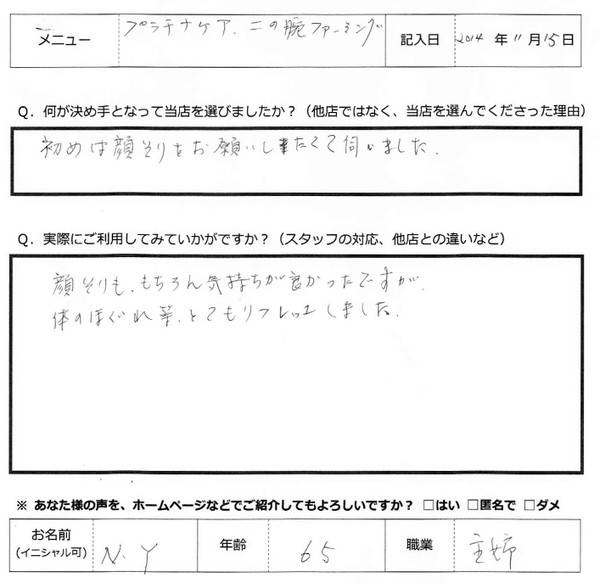 メニュー プラチナケア、二の腕ファーミング 記入日 2014年11月15日
Q. 何が決め手となって当店を選びましたか？（他店ではなく、当店を選んでくださった理由）
初めは顔そりをお願いしたくて伺いました.
Q. 実際にご利用してみていかがですか？（スタッフの対応、他店との違いなど）
顔そりも、もちろん気持ちが良かったですが、
体のほぐれ等、とてもリフレッシュしました.
※ あなた様の声を、ホームページなどでご紹介してもよろしいですか？ □はい □匿名で □ダメ
お名前 N.Y 年齢 65 職業 主婦
(イニシャル可)